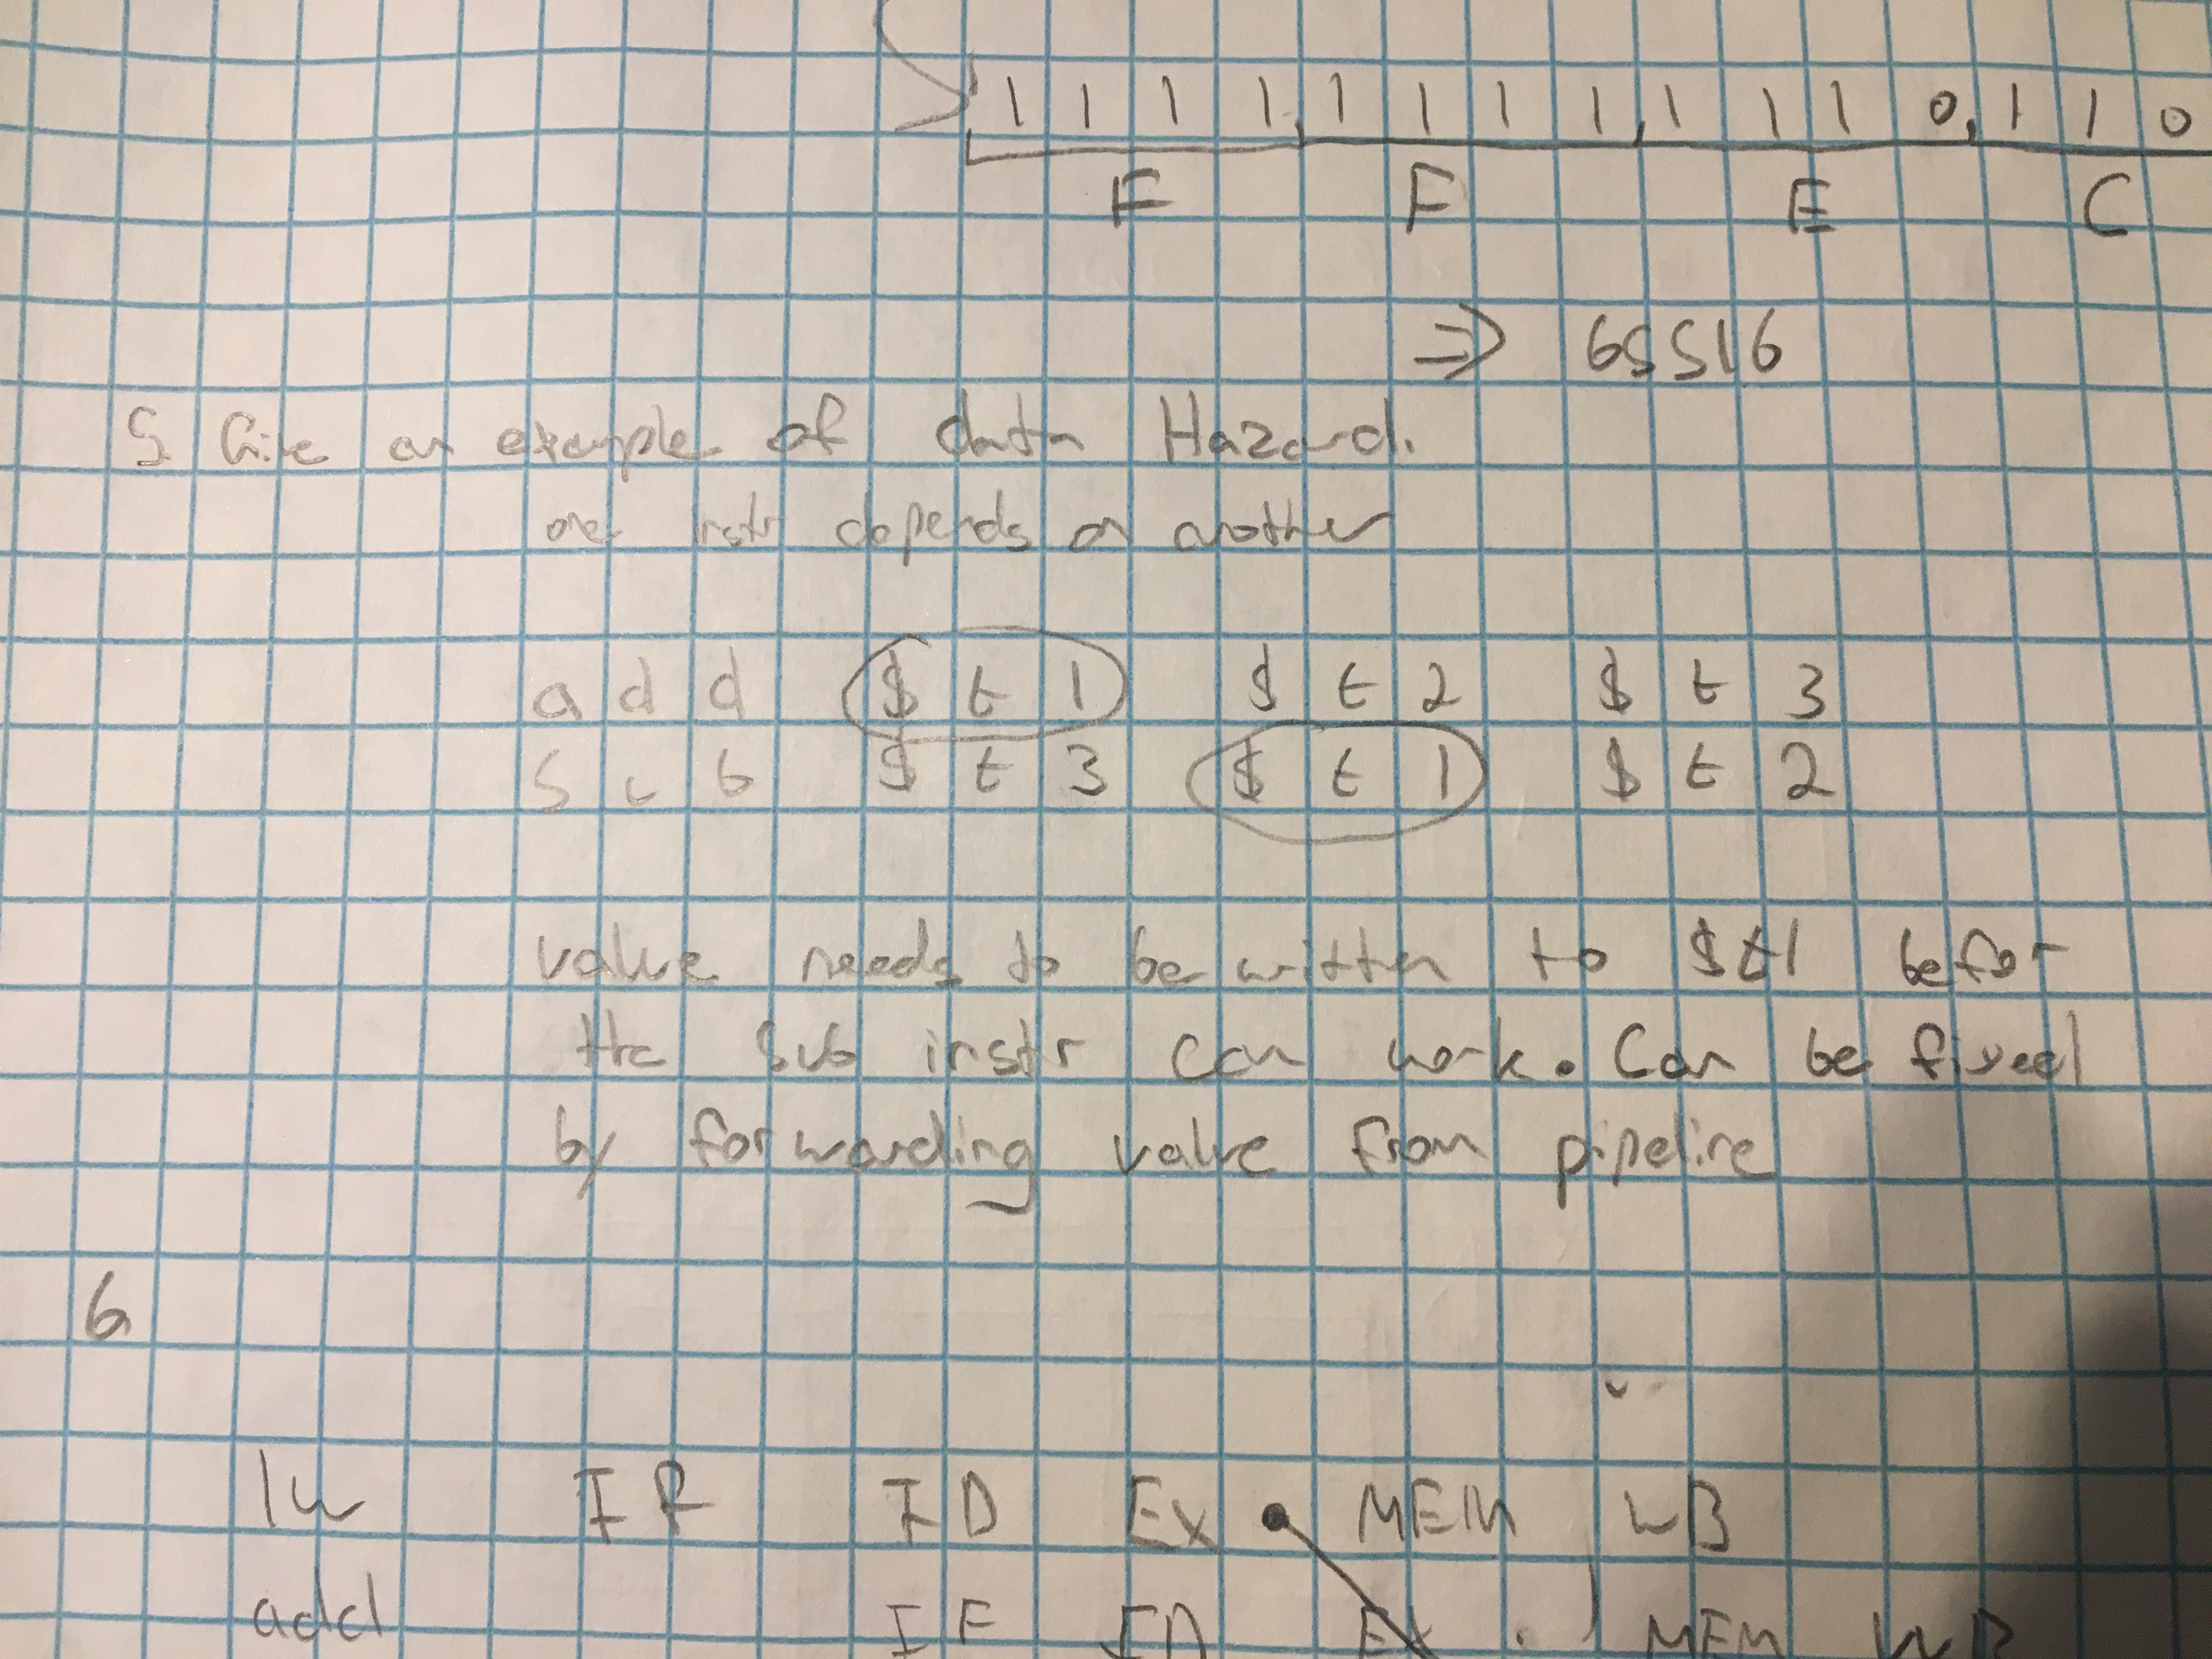 1 1 1 1, 1 1 1 1, 1 1 1 0, 1 1 0
F F E C
⇒ 65516
5 Give an example of data Hazard.
one instr depends on another
add $t1 $t2 $t3
sub $t3 $t1 $t2
value needs to be written to $t1 befor
the sub instr can work. Can be fixed
by forwarding value from pipeline
6
lw IF ID EX MEM WB
add IF ID EX MEM WB